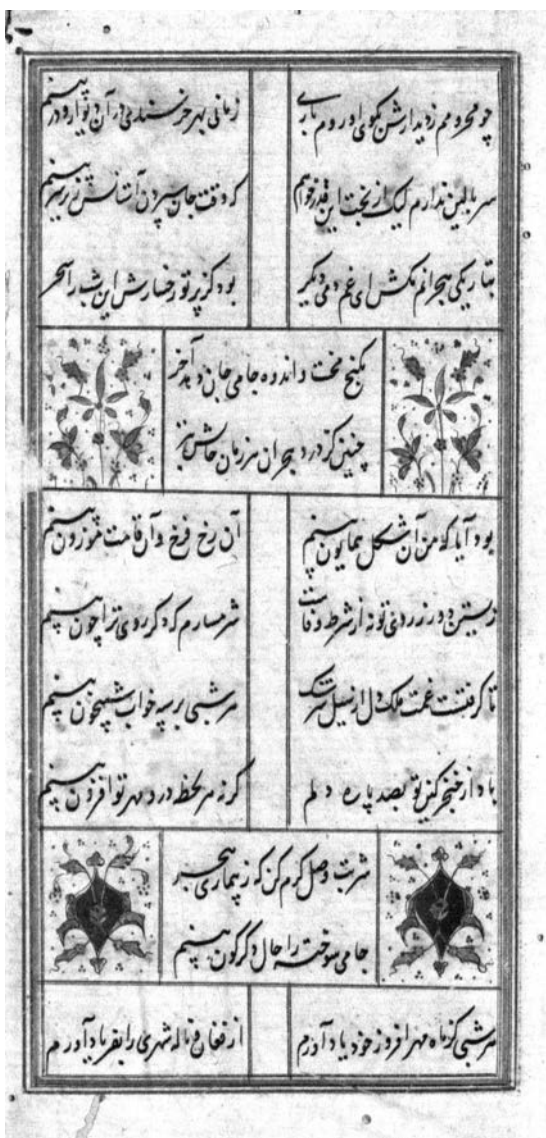 چو محرومم ز دیدارش بکوی او روم باری
زمانی بهر خرسندی در آن دیوار و در بینم
سر بالین ندارم لیک از بخت این قدر خواهم
که وقت جان سپردن آستانش زیر سر بینم
بتاریکی هجرانم مکش ای غم دمی دیگر
بود کز پرتو رخسارش این شب را سحر بینم
بکنج محنت و اندوه جامی جان دهد آخر
چنین کز درد هجران هر زمان حالش بتر بینم
بود آیا که من آن شکل همایون بینم
آن رخ فرخ و آن قامت موزون بینم
زیستن دور ز روی تو نه از شرط وفاست
شرمسارم که دگر روی ترا چون بینم
تا گرفتست غمت ملک دل از سیل سرشک
هر شبی بر سپه خواب شبیخون بینم
باد از خنجر کین تو بصد پاره دلم
گر نه هر لحظه درو مهر تو افزون بینم
شربت وصل کرم کن که ز بیماری هجر
جامی سوخته را حال دگرگون بینم
هر شبی کز ماه مهر افروز خود یاد آورم
از فغان و ناله شهری را بفریاد آورم